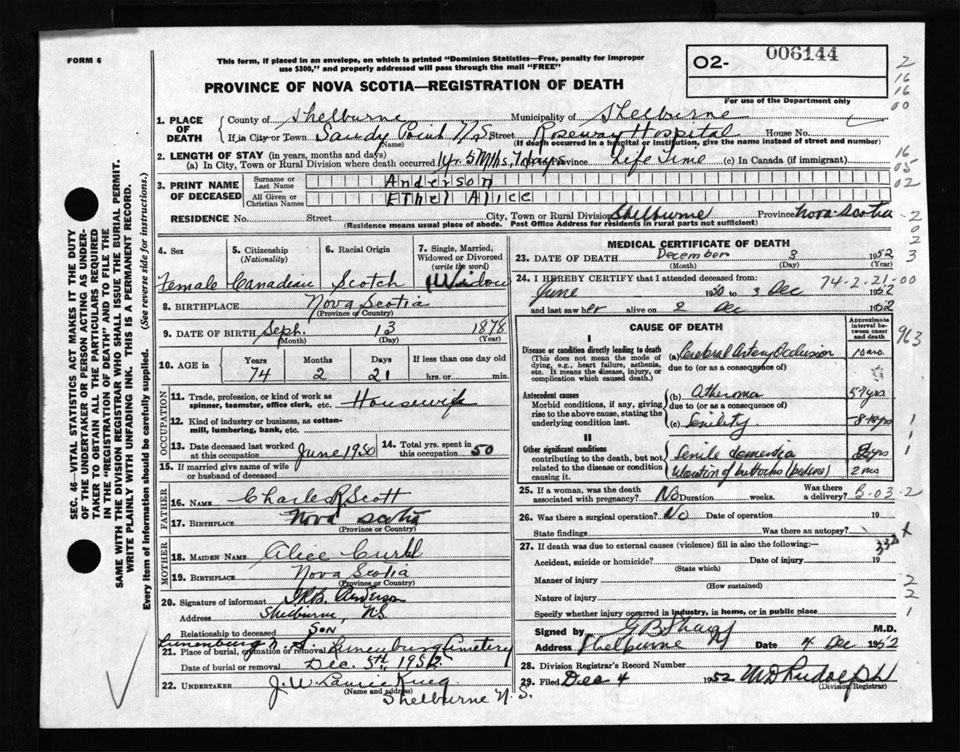 FORM 6
This form, if placed in an envelope, on which is printed "Dominion Statistics—Free, penalty for improper
use $300," and properly addressed will pass through the mail "FREE"
PROVINCE OF NOVA SCOTIA—REGISTRATION OF DEATH
02- 006144
For use of the Department only
2
16
16
00
1. PLACE OF DEATH
County of Shelburne Municipality of Shelburne
If in City or Town Sandy Point N/S Street Roseway Hospital House No.
(Name) (If death occurred in a hospital or institution, give the name instead of street and number)
2. LENGTH OF STAY (in years, months and days)
(a) In City, Town or Rural Division where death occurred 1 yr. 5 Mths, days Province Life Time (c) In Canada (if immigrant)
16
05
02
3. PRINT NAME OF DECEASED
Surname or Last Name Anderson
All Given or Christian Names Ethel Alice
RESIDENCE No. Street City, Town or Rural Division Shelburne Province Nova-Scotia
(Residence means usual place of abode. Post Office Address for residents in rural parts not sufficient)
2
0
2
3
4. Sex Female
5. Citizenship (Nationality) Canadian
6. Racial Origin Scotch
7. Single, Married, Widowed or Divorced (write the word) Widow
8. BIRTHPLACE Nova Scotia
(Province or Country)
9. DATE OF BIRTH Sept. 13 1878
(Month) (Day) (Year)
10. AGE in Years Months Days If less than one day old
74 2 21 hrs. or min.
OCCUPATION
11. Trade, profession, or kind of work as spinner, teamster, office clerk, etc. Housewife
12. Kind of industry or business, as cotton-mill, lumbering, bank, etc.
13. Date deceased last worked at this occupation June 1950
14. Total yrs. spent in this occupation 50
15. If married give name of wife or husband of deceased
FATHER
16. NAME Charles R Scott
17. BIRTHPLACE Nova Scotia
(Province or Country)
MOTHER
18. MAIDEN NAME Alice
19. BIRTHPLACE Nova Scotia
(Province or Country)
20. Signature of informant Anderson
Address Shelburne, NS
Relationship to deceased Son
Lunenburg N.S.
21. Place of burial, cremation or removal Lunenburg Cemetery
Date of burial or removal Dec. 5th, 1952
22. UNDERTAKER J. W. Laurie
(Name and address)
Shelburne N. S.
MEDICAL CERTIFICATE OF DEATH
23. DATE OF DEATH December 3 1952
(Month) (Day) (Year)
24. I HEREBY CERTIFY that I attended deceased from: 74-2-21-00
June 1950 to 3 Dec 1952
and last saw her alive on 2 Dec 1952
CAUSE OF DEATH
Approximate interval between onset and death
963
I
Disease or condition directly leading to death
(This does not mean the mode of dying, e.g., heart failure, asthenia, etc. It means the disease, injury, or complication which caused death.)
(a) Cerebral Artery Occlusion
due to (or as a consequence of)
Antecedent causes
Morbid conditions, if any, giving rise to the above cause, stating the underlying condition last.
(b) Atheroma
due to (or as a consequence of)
(c) Senility 8-10 yrs
II
Other significant conditions
contributing to the death, but not related to the disease or condition causing it.
Senile dementia
Ulceration of buttocks 2 mos
1
1
1
25. If a woman, was the death associated with pregnancy? No Duration weeks. Was there a delivery? 3-03-2
26. Was there a surgical operation? No Date of operation 19
State findings Was there an autopsy?
27. If death was due to external causes (violence) fill in also the following:—
Accident, suicide or homicide? Date of injury 19
(State which)
Manner of injury
(How sustained)
Nature of injury
Specify whether injury occurred in industry, in home, or in public place
2
2
1
Signed by M.D.
Address Shelburne Date 4 Dec 1952
28. Division Registrar's Record Number
29. Filed Dec 4 1952 Rudolph
(Division Registrar)
SEC. 46—VITAL STATISTICS ACT MAKES IT THE DUTY
OF THE UNDERTAKER OR PERSON ACTING AS UNDER-
TAKER TO OBTAIN ALL THE PARTICULARS REQUIRED
IN THE "REGISTRATION OF DEATH" AND TO FILE THE
SAME WITH THE DIVISION REGISTRAR WHO SHALL ISSUE THE BURIAL PERMIT.
WRITE PLAINLY WITH UNFADING INK. THIS IS A PERMANENT RECORD.
Every item of information should be carefully supplied. (See reverse side for instructions.)